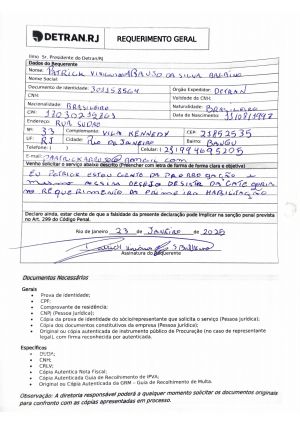 DETRAN.RJ
REQUERIMENTO GERAL
Ilmo Sr. Presidente do Detran/RJ
Dados do Requerente
Nome: PATRICK DA SILVA
Nome Social:
Documento de Identidade: Órgão Expedidor: DETRAN
CNH: Validade da CNH:
Nacionalidade: BRASILEIRO Naturalidade: BRASILEIRO
CPF: Data de Nascimento:
Endereço: RUA
Nº: 33 Complemento: VILA KENNEDY CEP:
UF: RJ Cidade: RIO DE JANEIRO Bairro: BANGU
Telefone: ( ) Celular:
E-mail:
Venho solicitar o serviço abaixo descrito (Preencher com letra de forma de forma clara e objetiva)
EU PATRICK ESTOU CIENTE DA PRORROGAÇÃO E
MESMO ASSIM DESEJO DESISTIR DA CATEGORIA
NO REQUERIMENTO DA PRIMEIRA HABILITAÇÃO
Declaro ainda, estar ciente de que a falsidade da presente declaração pode implicar na sanção penal prevista
no Art. 299 do Código Penal.
Rio de Janeiro 23 de JANEIRO de 2025
Assinatura do Requerente
Documentos Necessários
Gerais
• Prova de identidade;
• CPF;
• Comprovante de residência;
• CNPJ (Pessoa Jurídica);
• Cópia da prova de identidade do sócio/representante que solicita o serviço (Pessoa Jurídica);
• Cópia dos documentos constitutivos da empresa (Pessoa Jurídica);
• Original ou cópia autenticada de instrumento público de Procuração (no caso de representante
legal), com firma reconhecida por autenticada.
Específicos
• DUDA;
• CNH;
• CRLV;
• Cópia Autenticada Nota Fiscal;
• Cópia Autenticada Guia de Recolhimento de IPVA;
• Original ou Cópia Autenticada da GRM – Guia de Recolhimento de Multa.
Observação: A diretoria responsável poderá a qualquer momento solicitar os documentos originais
para confronto com as cópias apresentadas em processo.